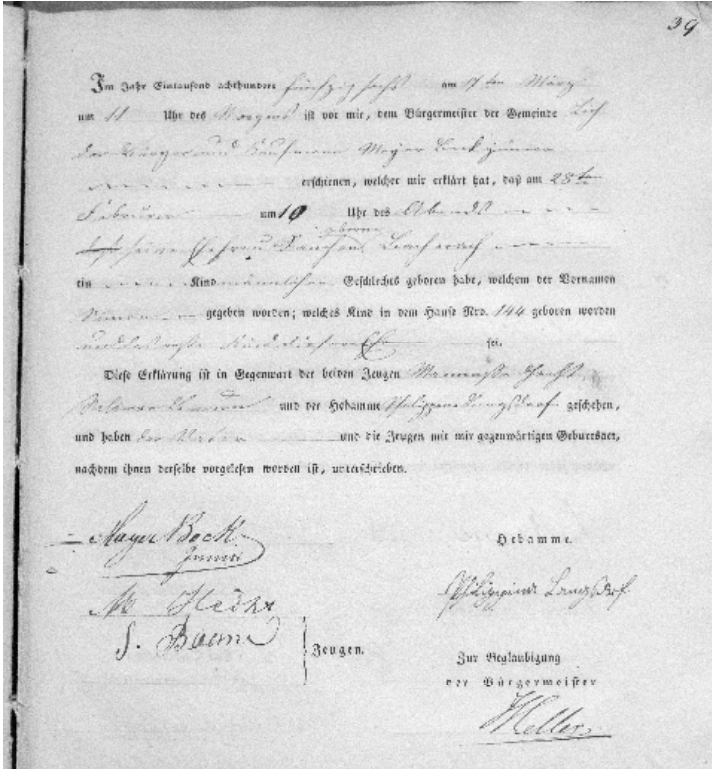 39
Im Jahr Eintausend achthundert fünfzig sechs am 1ten März
um 11 Uhr des Morgens ist vor mir, dem Bürgermeister der Gemeinde Lich
der Bürger und Kaufmann Mayer Bock junior
erschienen, welcher mir erklärt hat, daß am 28ten
Februar um 10 Uhr des Abends
seine Ehefrau geborne Bacherach
ein Kind männlichen Geschlechts geboren habe, welchem der Vornamen
gegeben worden; welches Kind in dem Hause Nro. 144 geboren worden
und das erste Kind dieser Ehe sei.
Diese Erklärung ist in Gegenwart der beiden Zeugen
und der Hebamme Philippine Langsdorf geschehen,
und haben der Vater und die Zeugen mit mir gegenwärtigen Geburtsact,
nachdem ihnen derselbe vorgelesen worden ist, unterschrieben.
Mayer Bock
Junior
Hebamme
Philippine Langsdorf
M
S.
Zeugen.
Zur Beglaubigung
der Bürgermeister
Heller